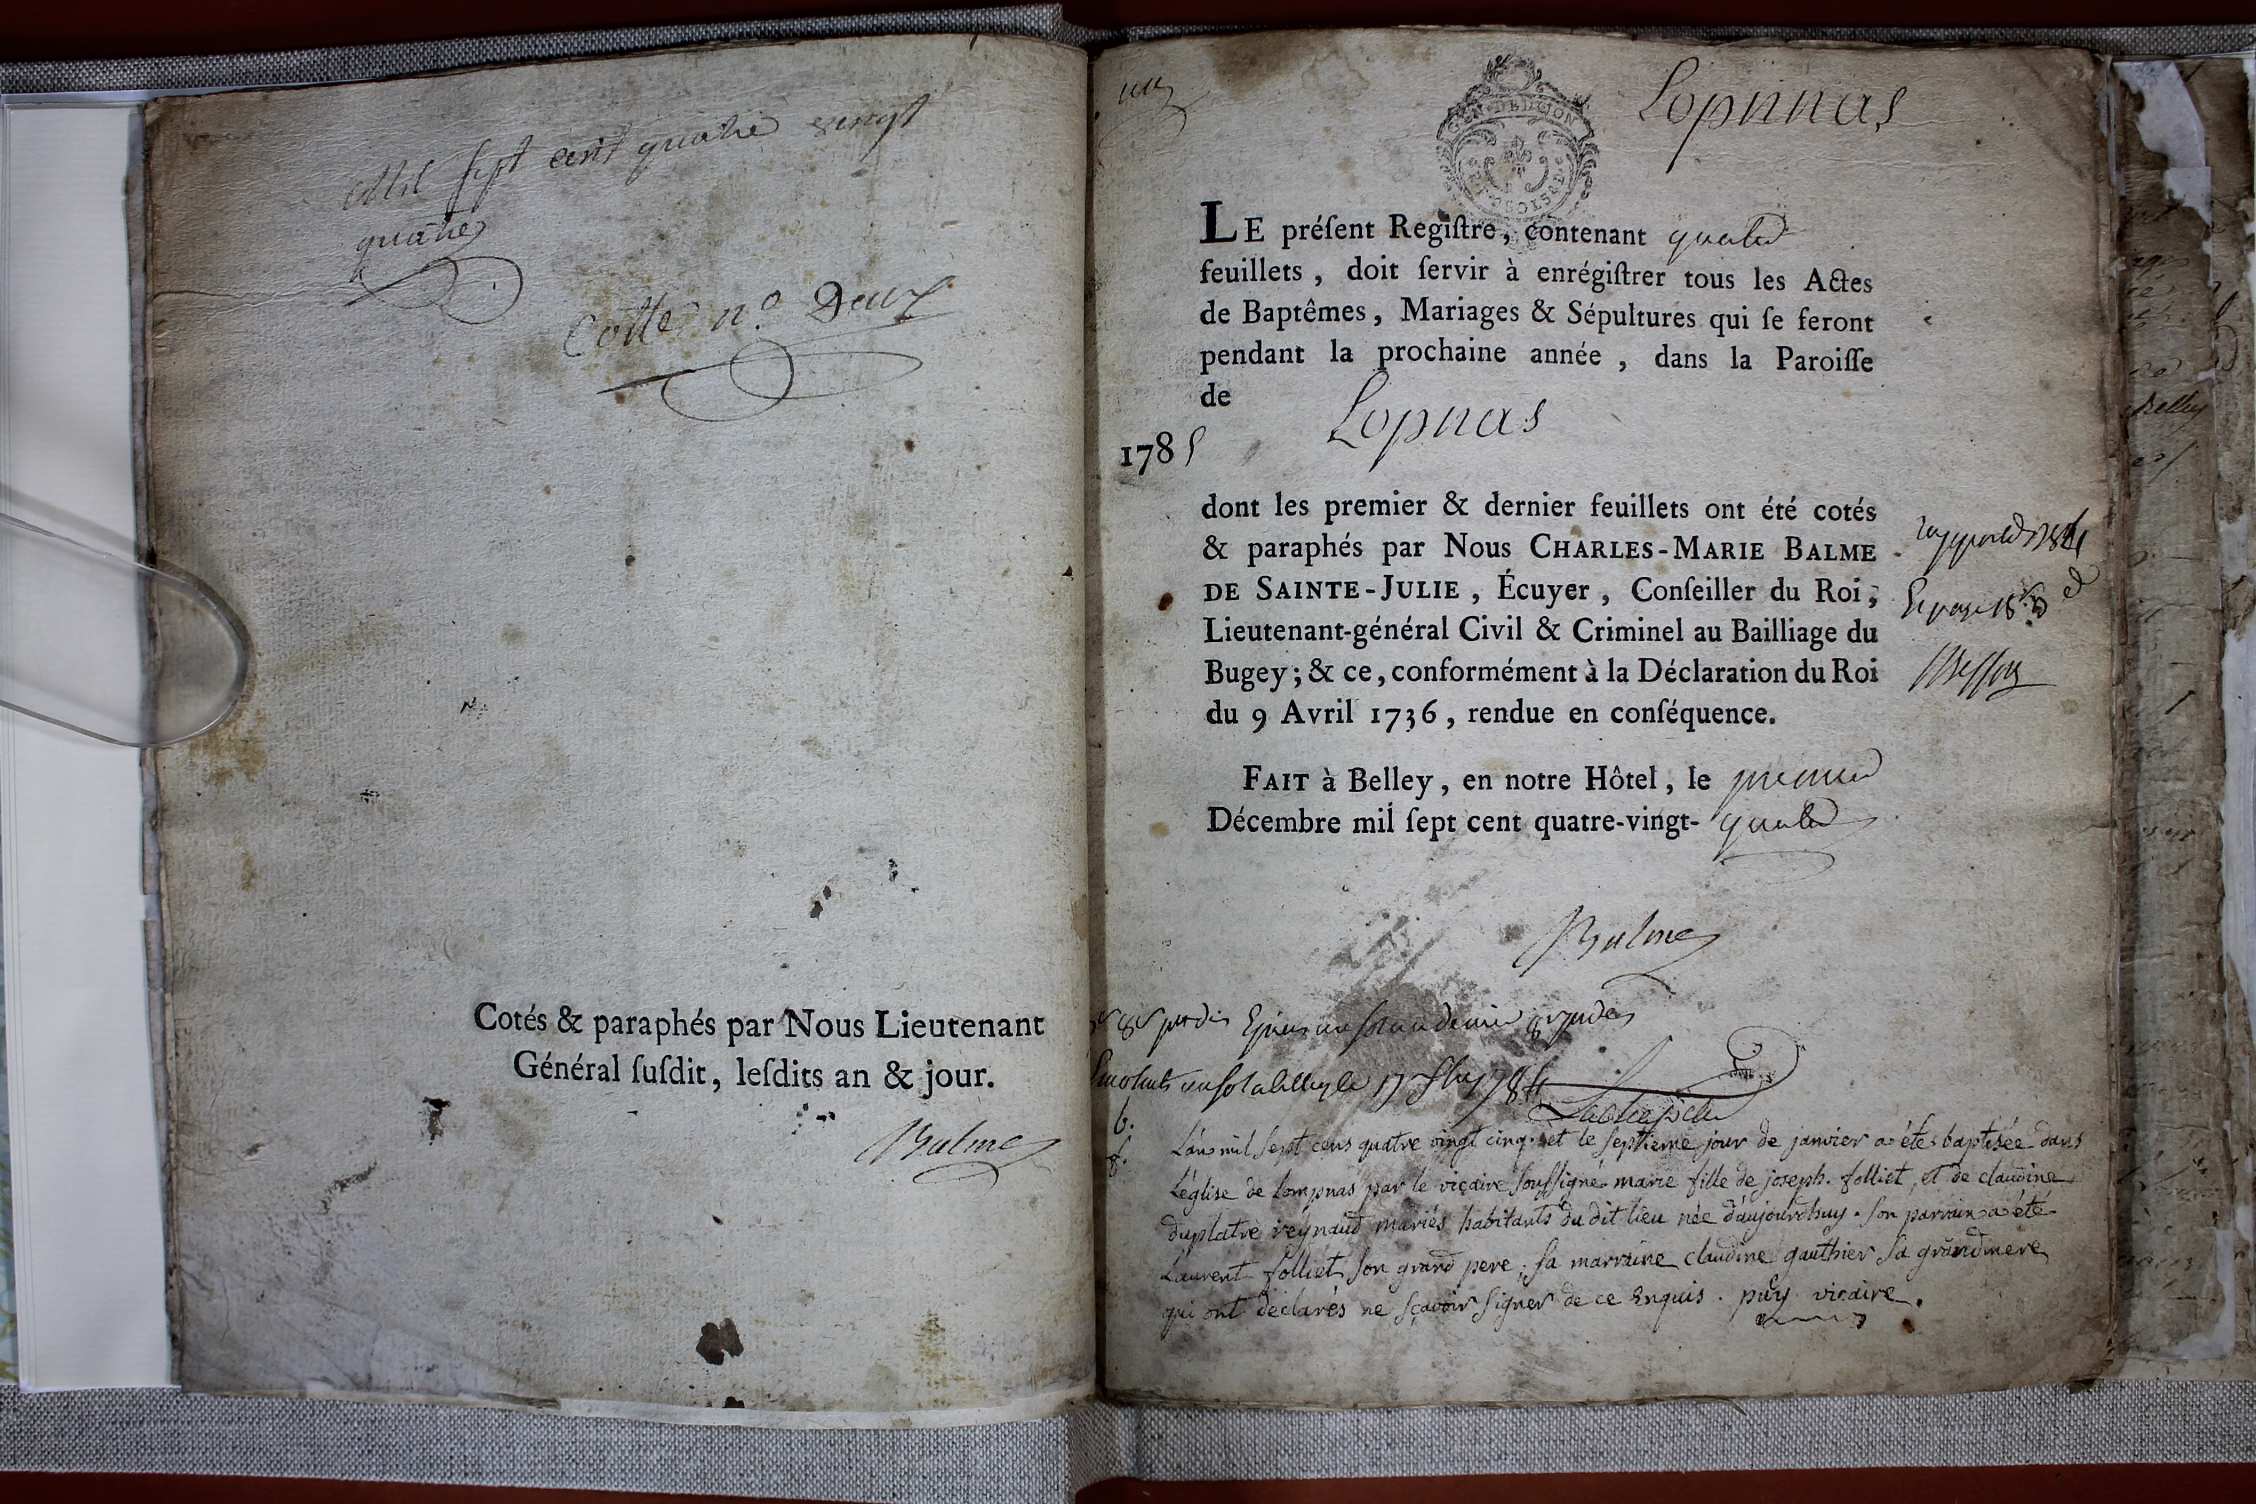 Mil sept cent quatre vingt
quatre
Cotte n.o Deux
Cotés & paraphés par Nous Lieutenant
Général ſuſdit, leſdits an & jour.
Balme
un
GEN DE DIJON
Lopnnas
LE préſent Regiſtre, contenant quatre
feuillets, doit ſervir à enrégiſtrer tous les Actes
de Baptêmes, Mariages & Sépultures qui ſe feront
pendant la prochaine année, dans la Paroiſſe
de Lopnas
1785
dont les premier & dernier feuillets ont été cotés
& paraphés par Nous CHARLES-MARIE BALME
DE SAINTE-JULIE, Écuyer, Conſeiller du Roi,
Lieutenant-général Civil & Criminel au Bailliage du
Bugey; & ce, conformément à la Déclaration du Roi
du 9 Avril 1736, rendue en conſéquence.
FAIT à Belley, en notre Hôtel, le premier
Décembre mil ſept cent quatre-vingt-quatre
Balme
b.
f.
L'an mil sept cens quatre vingt cinq et le septieme jour de janvier a été baptisée dans
L'église de Lompnas par le viçaire soussigné marie fille de joseph folliet, et de claudine
duplatre reynaud mariés habitants du dit lieu née d'aujourdhuy. son parrain a été
Laurent folliet son grand pere; sa marraine claudine gauthier sa grandmere
qui ont déclarés ne sçavoir signer de ce Enquis. puy vicaire.